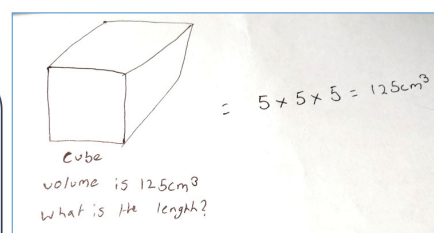 = 5 x 5 x 5 = 125cm³
Cube
volume is 125cm³
what is the length?